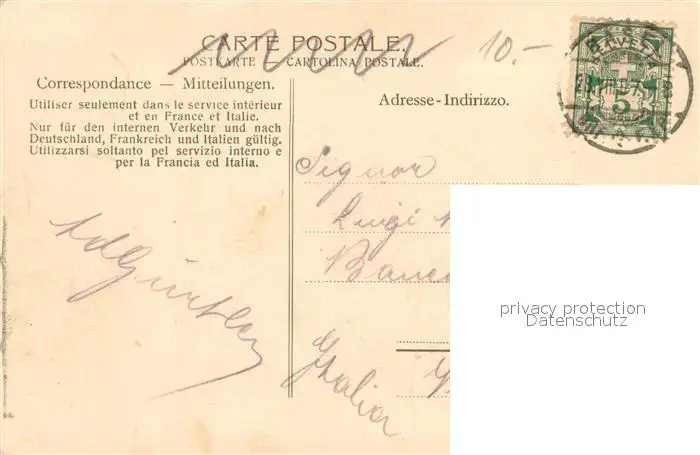 CARTE POSTALE.
POSTKARTE – CARTOLINA POSTALE.
10.-
HELVETIA
5
Correspondance — Mitteilungen.
Utiliser seulement dans le service intérieur
et en France et Italie.
Nur für den internen Verkehr und nach
Deutschland, Frankreich und Italien gültig.
Utilizzarsi soltanto pel servizio interno e
per la Francia ed Italia.
Adresse-Indirizzo.
Signor
Luigi
Italia
privacy protection
Datenschutz